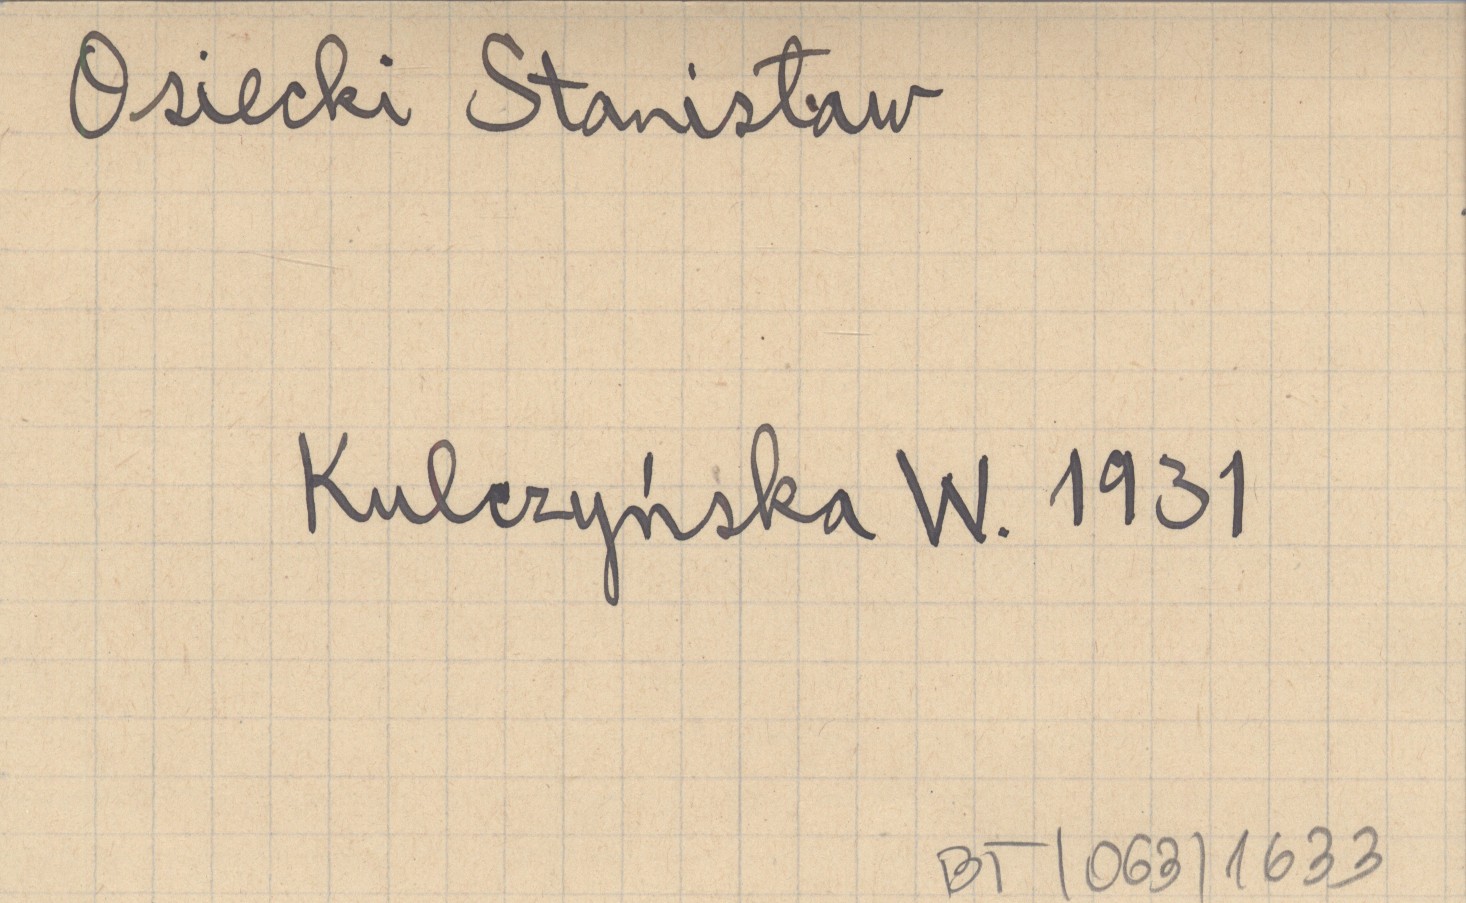 Osiecki Stanisław
Kulczyńska W. 1931
BT/063/1633